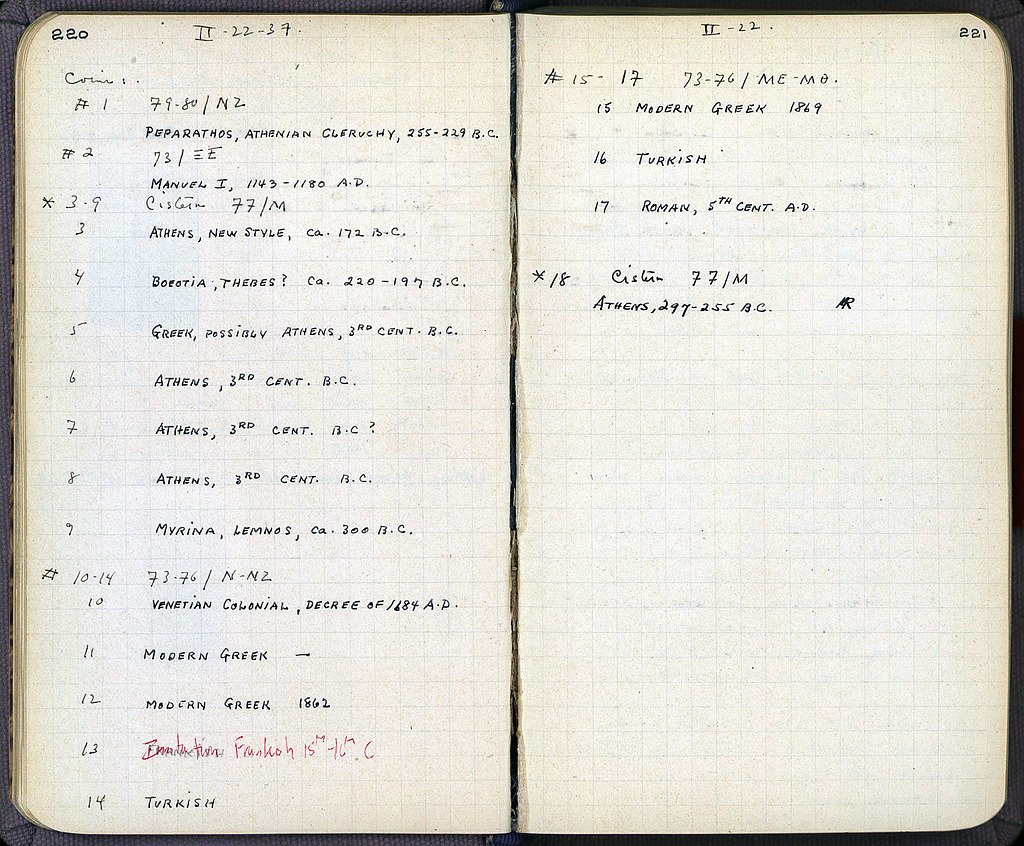 220
II-22-37.
Coins:.
# 1 79-80/NZ
PEPARATHOS, ATHENIAN CLERUCHY, 255-229 B.C.
# 2 73/ΞΕ
MANUEL I, 1143-1180 A.D.
* 3-9 Cistern 77/M
3 ATHENS, NEW STYLE, Ca. 172 B.C.
4 BOEOTIA, THEBES? Ca. 220-197 B.C.
5 GREEK, POSSIBLY ATHENS, 3RD CENT. B.C.
6 ATHENS, 3RD CENT. B.C.
7 ATHENS, 3RD CENT. B.C?
8 ATHENS, 3RD CENT. B.C.
9 MYRINA, LEMNOS, Ca. 300 B.C.
# 10-14 73-76/N-NZ
10 VENETIAN COLONIAL, DECREE OF 1684 A.D.
11 MODERN GREEK —
12 MODERN GREEK 1862
13 Imitation Frankish 15th-16th C
14 TURKISH
II-22.
221
# 15-17 73-76/ME-MΘ.
15 MODERN GREEK 1869
16 TURKISH
17 ROMAN, 5TH CENT. A.D.
* 18 Cistern 77/M
ATHENS, 297-255 B.C. AR